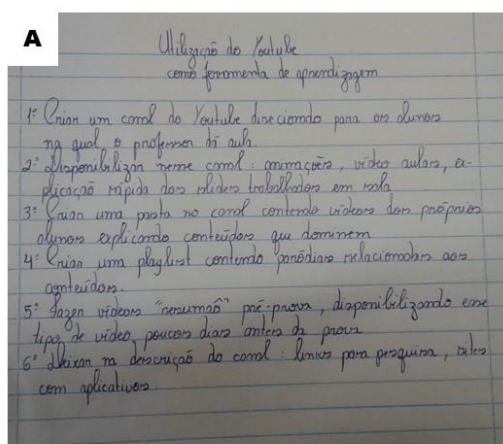 A
Utilização do Youtube
como ferramenta de aprendizagem
1º Criar um canal do Youtube direcionado para os alunos
na qual o professor dá aula.
2º Disponibilizar nesse canal: animações, vídeo aulas, ex-
plicação rápida dos slides trabalhados em sala
3º Criar uma pasta no canal contendo vídeos dos próprios
alunos explicando conteúdos que dominem
4º Criar uma playlist contendo paródias relacionadas aos
conteúdos.
5º Fazer vídeos "resumão" pré-prova, disponibilizando esse
tipo de vídeo poucos dias antes da prova
6º Deixar na descrição do canal: links para pesquisa, sites
com aplicativos